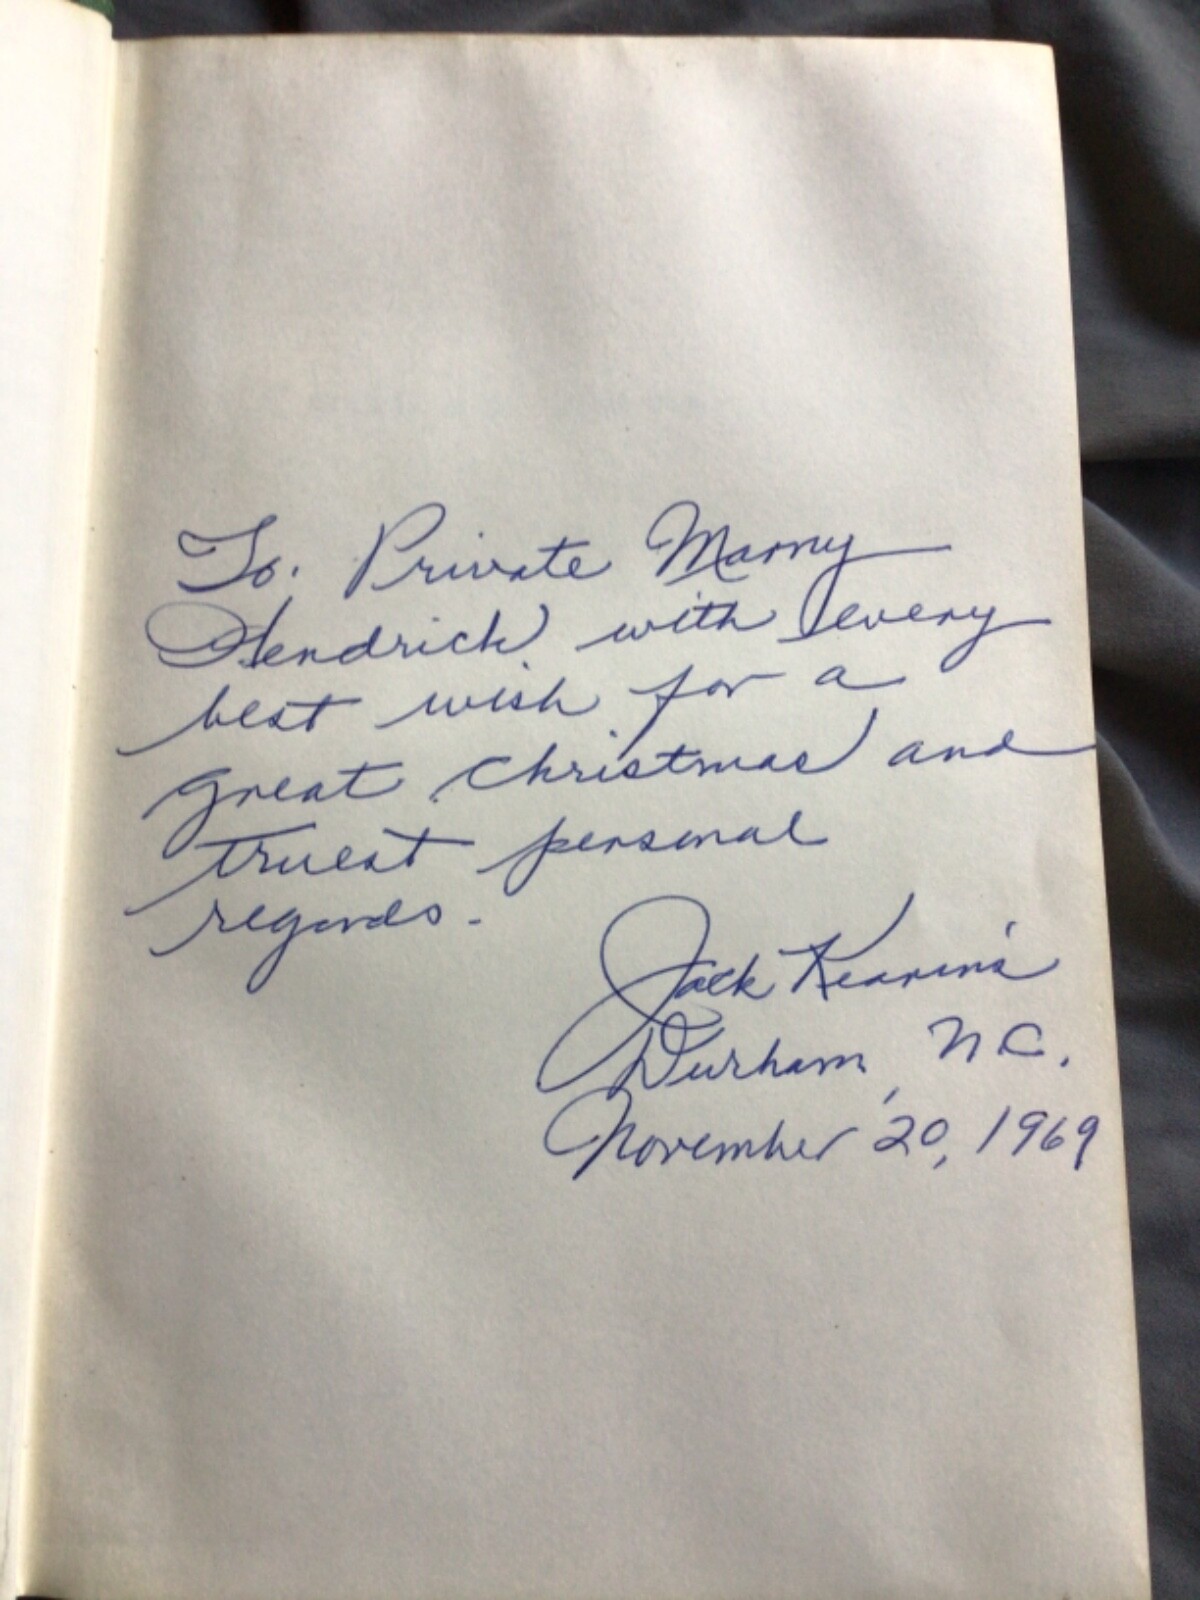 To. Private Manny
Hendrick with every
best wish for a
great Christmas and
truest personal
regards.
Jack Kearins
Durham, N.C.
November 20, 1969